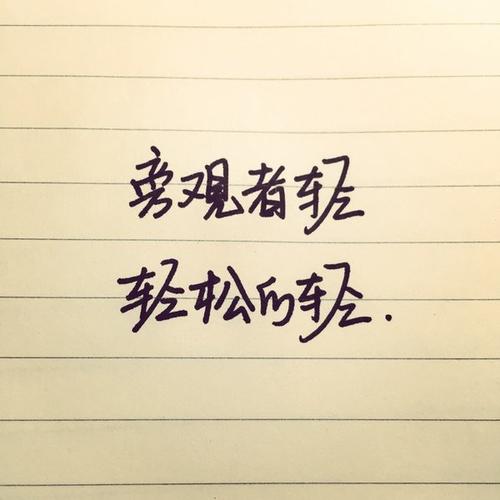 旁观者轻
轻松的轻.